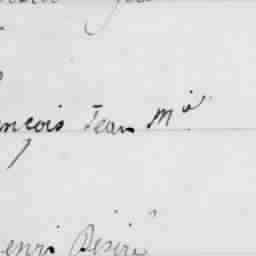 nçois Jean Mie
enri Désiré